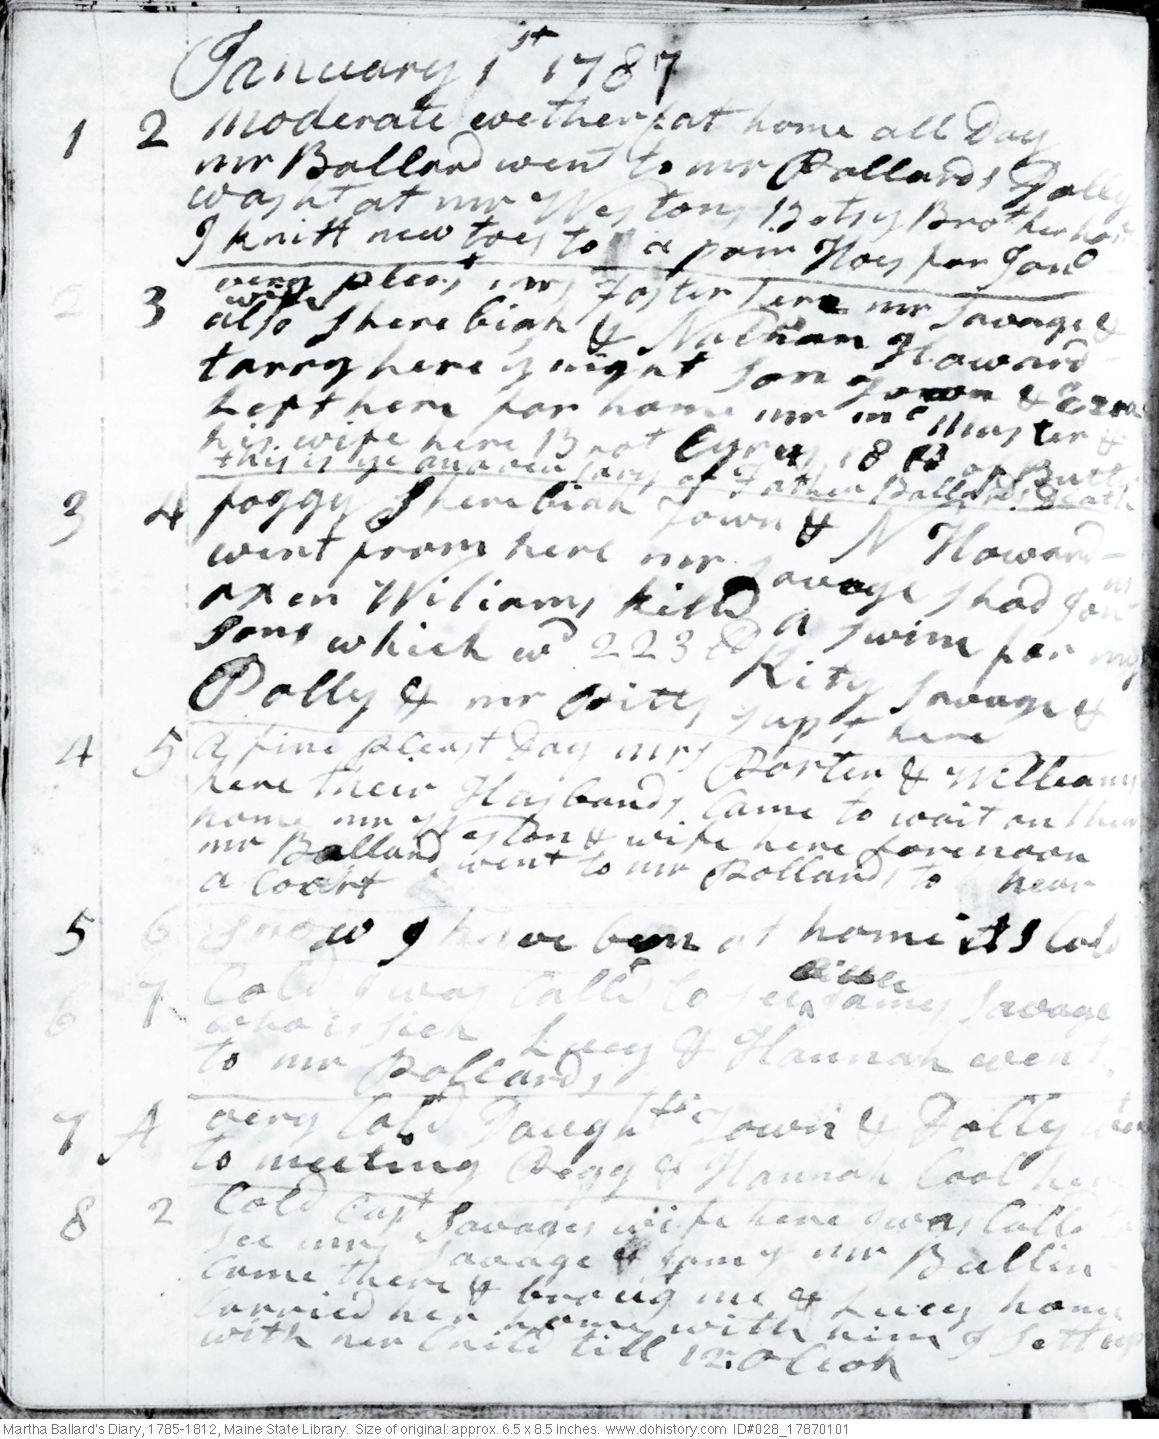 January 1st 1787
1 2 moderate wether at home all Day
mr Ballard went to mr Pollards Polly
washt at mr Westons Betsy Brother here
I knitt new toes to a pair Hoes for Jond
2 3 very pleast mrs Foster here mr Savage &
wife
also Sherebiah & Nathan Howard
tarry here ye night Son Town & Ezra
left here for home mr mcMaster &
his wife here Brot Cyrus 18 lb of Butter
this is ye anaversary of Father Ballards Death
3 4 foggy Sherebiah Town & N Howard
went from here mr Savage shod Jons
oxen Wiliams killd a swine for my
sons which wd 223 lb Kity Savage &
Polly & mr Pitts supt here
4 5 a fine pleast Day mrs Porter & Williams
here their Husbands Came to wait on them
home mr Weston & wife here forenoon
mr Ballard went to mr Pollards to hear
a Coort
5 6 Snow I have been at home it is Cold
6 7 Cold I was Calld to see little James Savage
who is sick Lucy & Hannah went
to mr Pollards
7 A very Cold Daught Town & Dolly went
to meeting Pegg & Hannah Cool here
8 2 Cold Capt Savages wife here I was Calld to
see mrs Savage & James mr Ballin
Came there & broug me & Lucy home
Carried her home with him I sett up
with her Child till 12 O Clok
Martha Ballard's Diary, 1785-1812, Maine State Library. Size of original: approx. 6.5 x 8.5 inches. www.dohistory.com ID#028_17870101